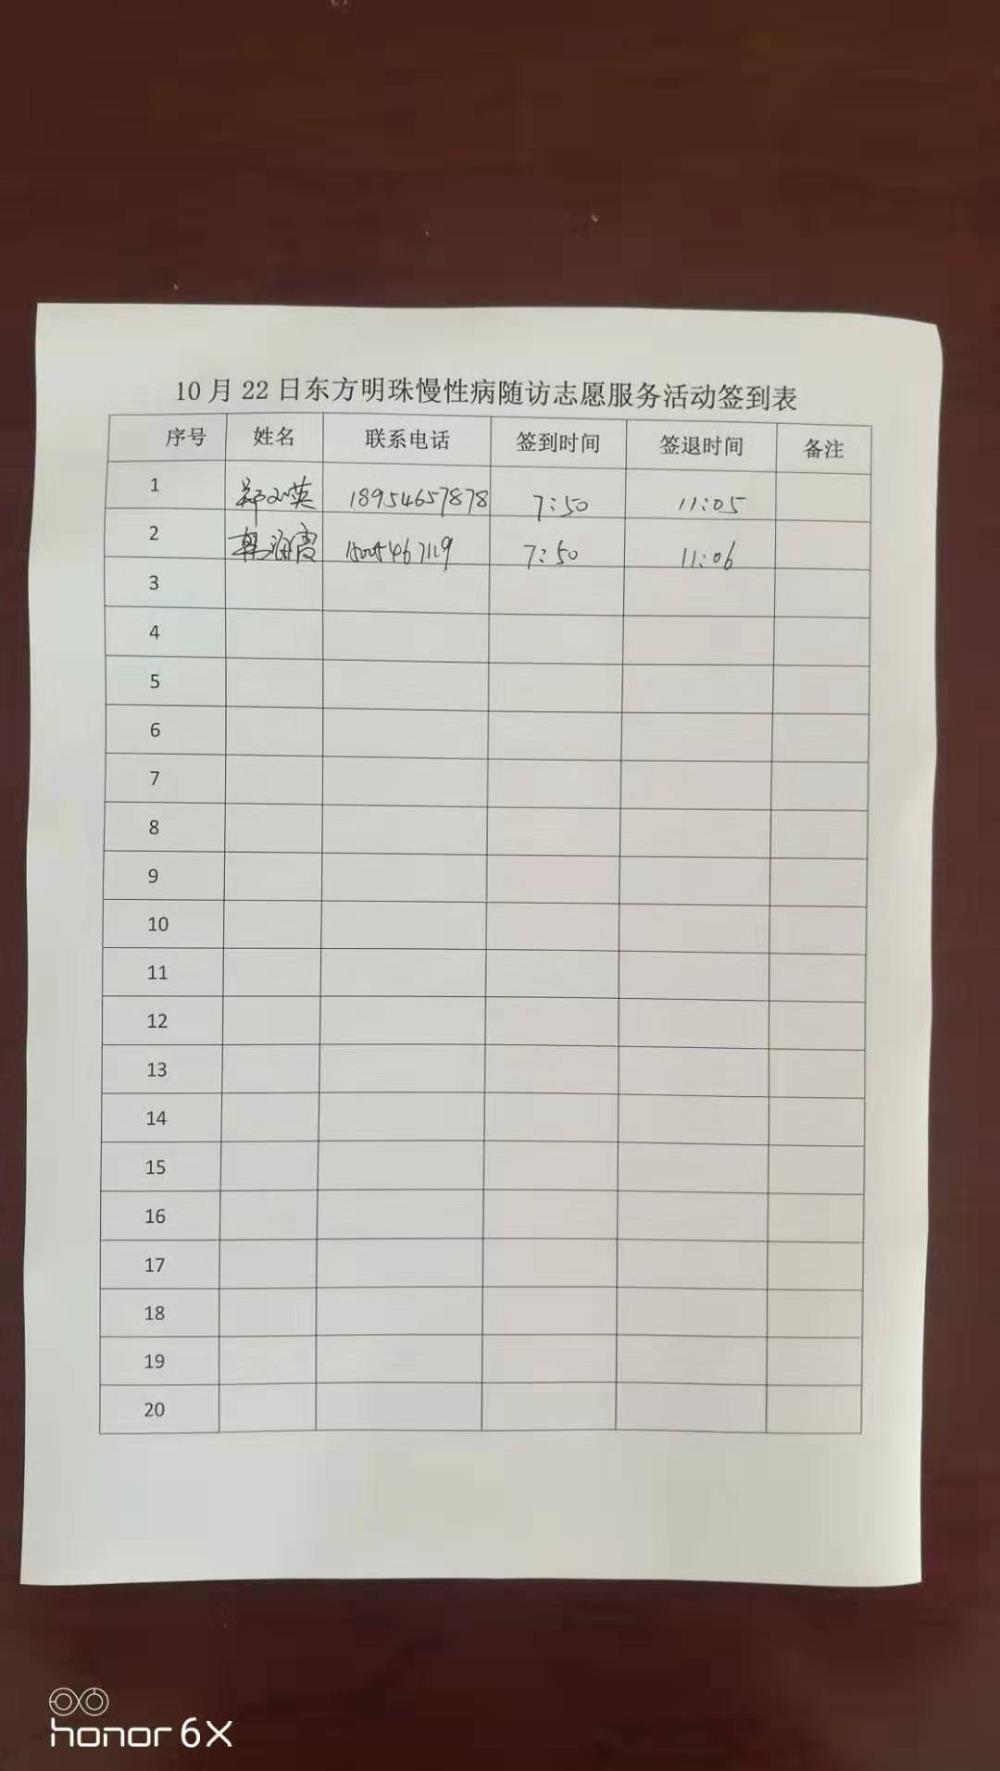 10月22日东方明珠慢性病随访志愿服务活动签到表
序号 姓名 联系电话 签到时间 签退时间 备注
1 郑小英 18954657878 7:50 11:05
2 霞 7:50 11:06
3
4
5
6
7
8
9
10
11
12
13
14
15
16
17
18
19
20
honor 6X